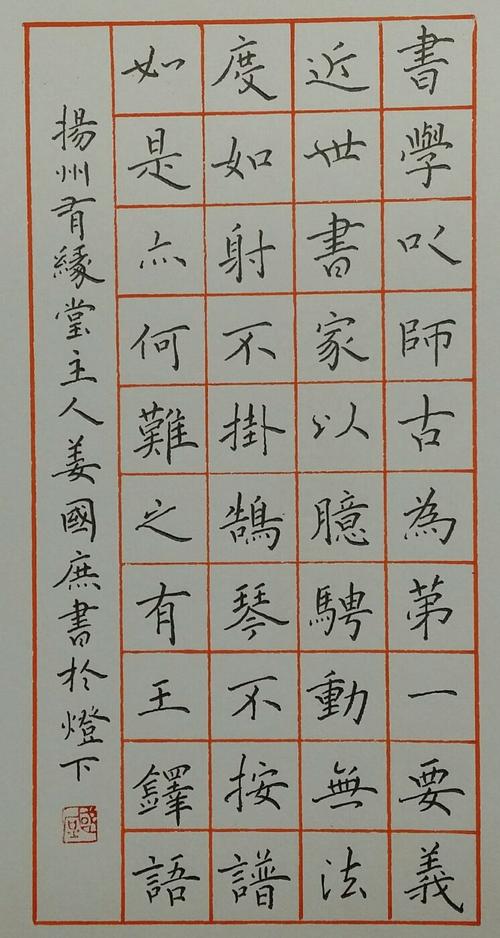 書學以師古為第一要義
近世書家以臆騁動無法
度如射不掛鵠琴不按譜
如是亦何難之有王鐸語
揚州有緣堂主人姜國庶書於燈下